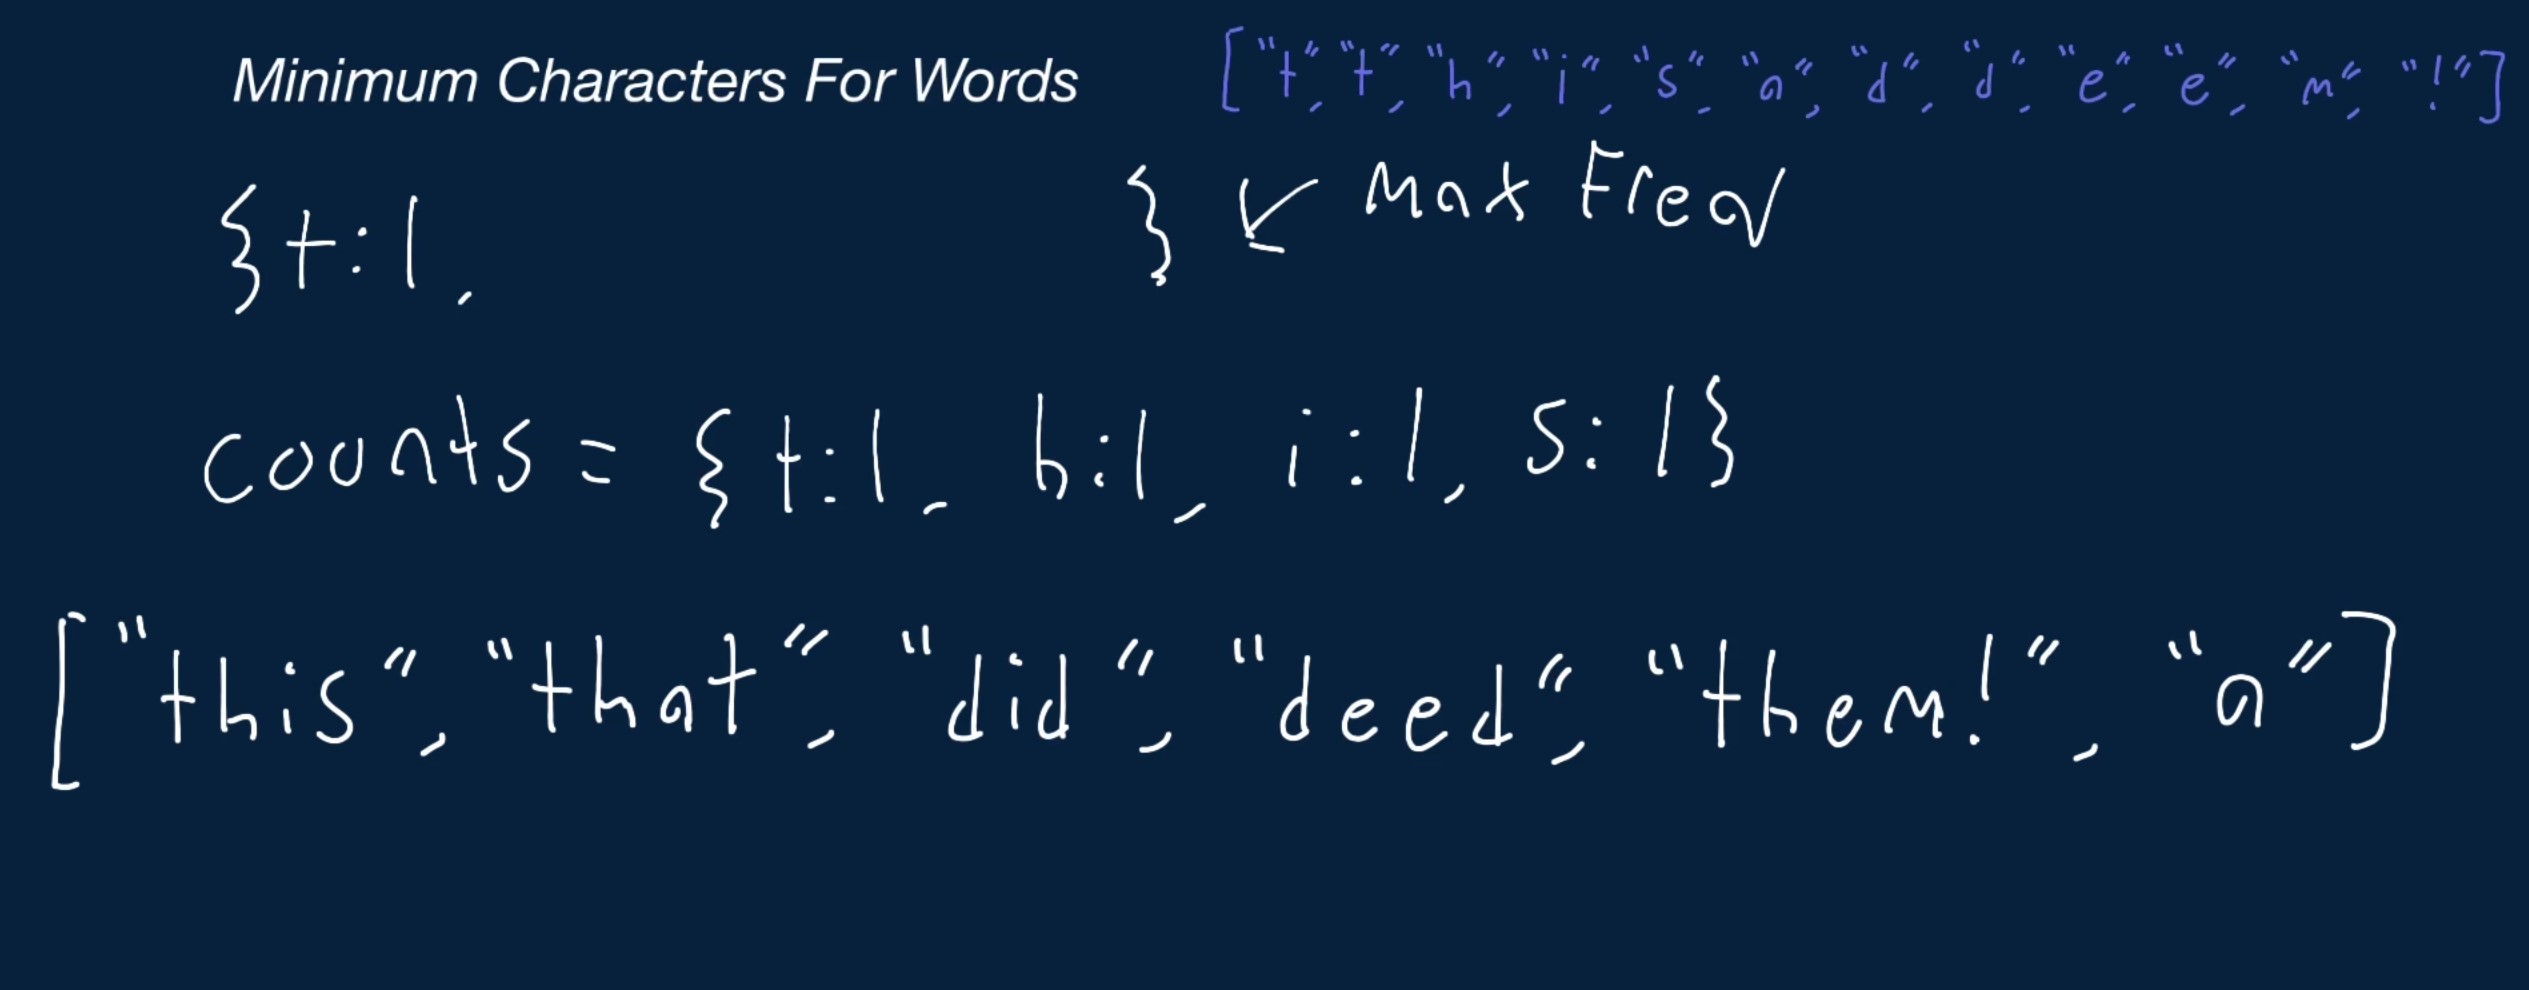 Minimum Characters For Words
["t", "t", "h", "i", "s", "a", "d", "d", "e", "e", "m", "!"]
{t:1, } ↙ Max Freq
counts = {t:1, h:1, i:1, s:1}
["this", "that", "did", "deed", "them!", "a"]